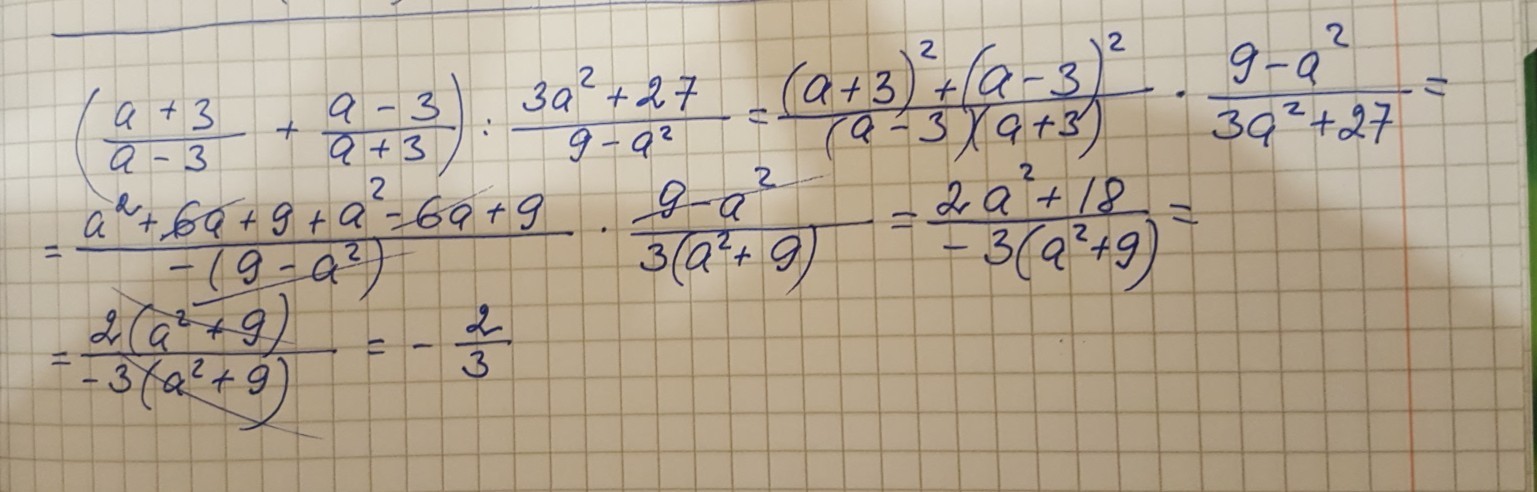 (a+3/a-3 + a-3/a+3) : 3a²+27/9-a² = (a+3)²+(a-3)²/(a-3)(a+3) · 9-a²/3a²+27 =
= a²+6a+9+a²-6a+9/-(9-a²) · 9-a²/3(a²+9) = 2a²+18/-3(a²+9) =
= 2(a²+9)/-3(a²+9) = - 2/3